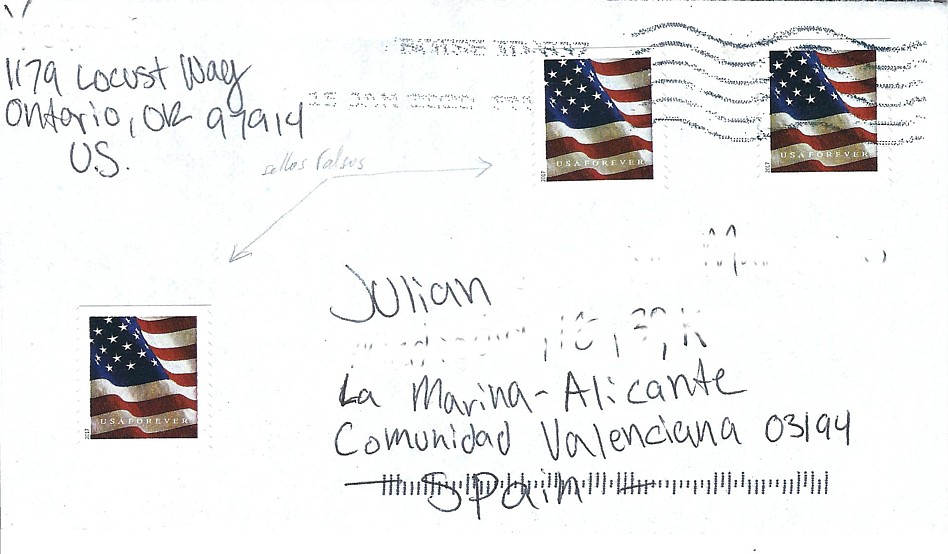 1179 Locust Way
Ontario, OR 97914
U.S.
sellos falsos
BOISE ID
15 JAN
USA FOREVER
2017
USA FOREVER
USA FOREVER
2017
Julian
La Marina - Alicante
Comunidad Valenciana 03194
Spain